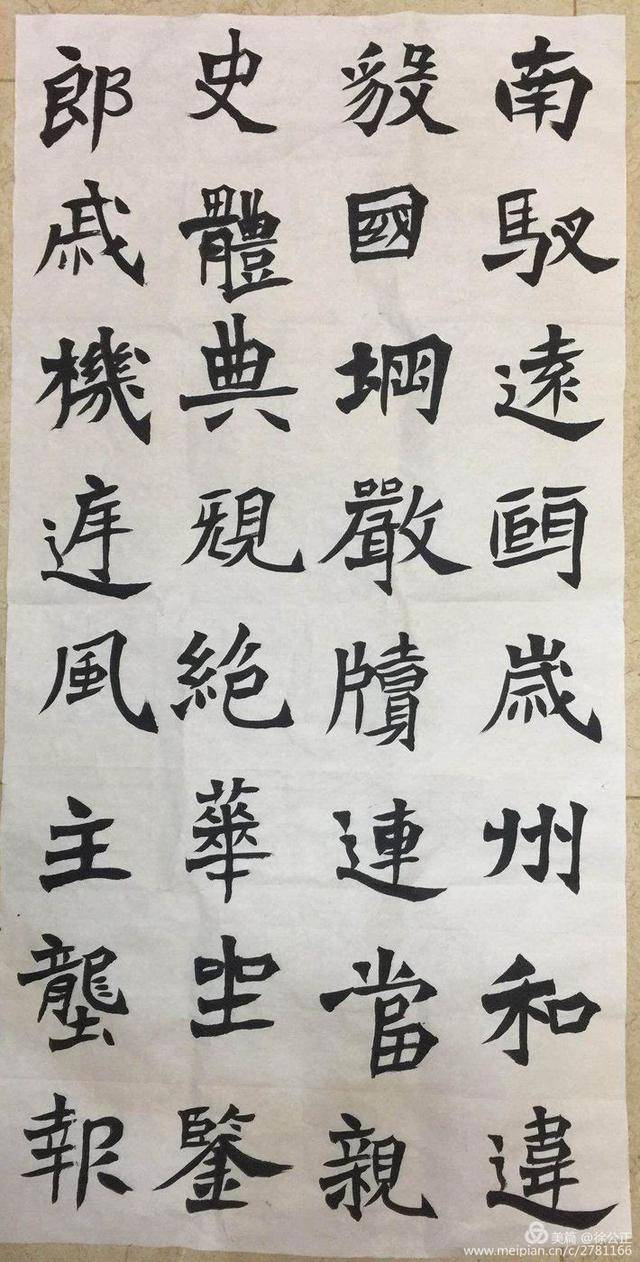 南馭遠頤歲州和違
國堈嚴牘連當親
史體典絕華坐鑒
郎戚機風主蠪報
美篇 @徐公正
www.meipian.cn/c/2781166